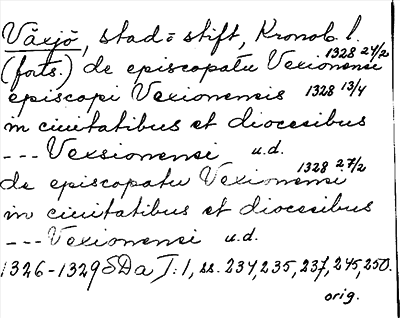 Växjö, stad o stift, Kronob. l.
(forts.) de episcopatu Vexionensi 1328 24/2
episcopi Vexionensis 1328 13/4
in ciuitatibus et diocesibus
--- Vexsionensi u.d.
de episcopatu Vexionensi 1328 27/2
in ciuitatibus et diocesibus
--- Vexionensi u.d.
1326-1329 SDa T. 1, ss. 234, 235, 237, 245, 250.
orig.